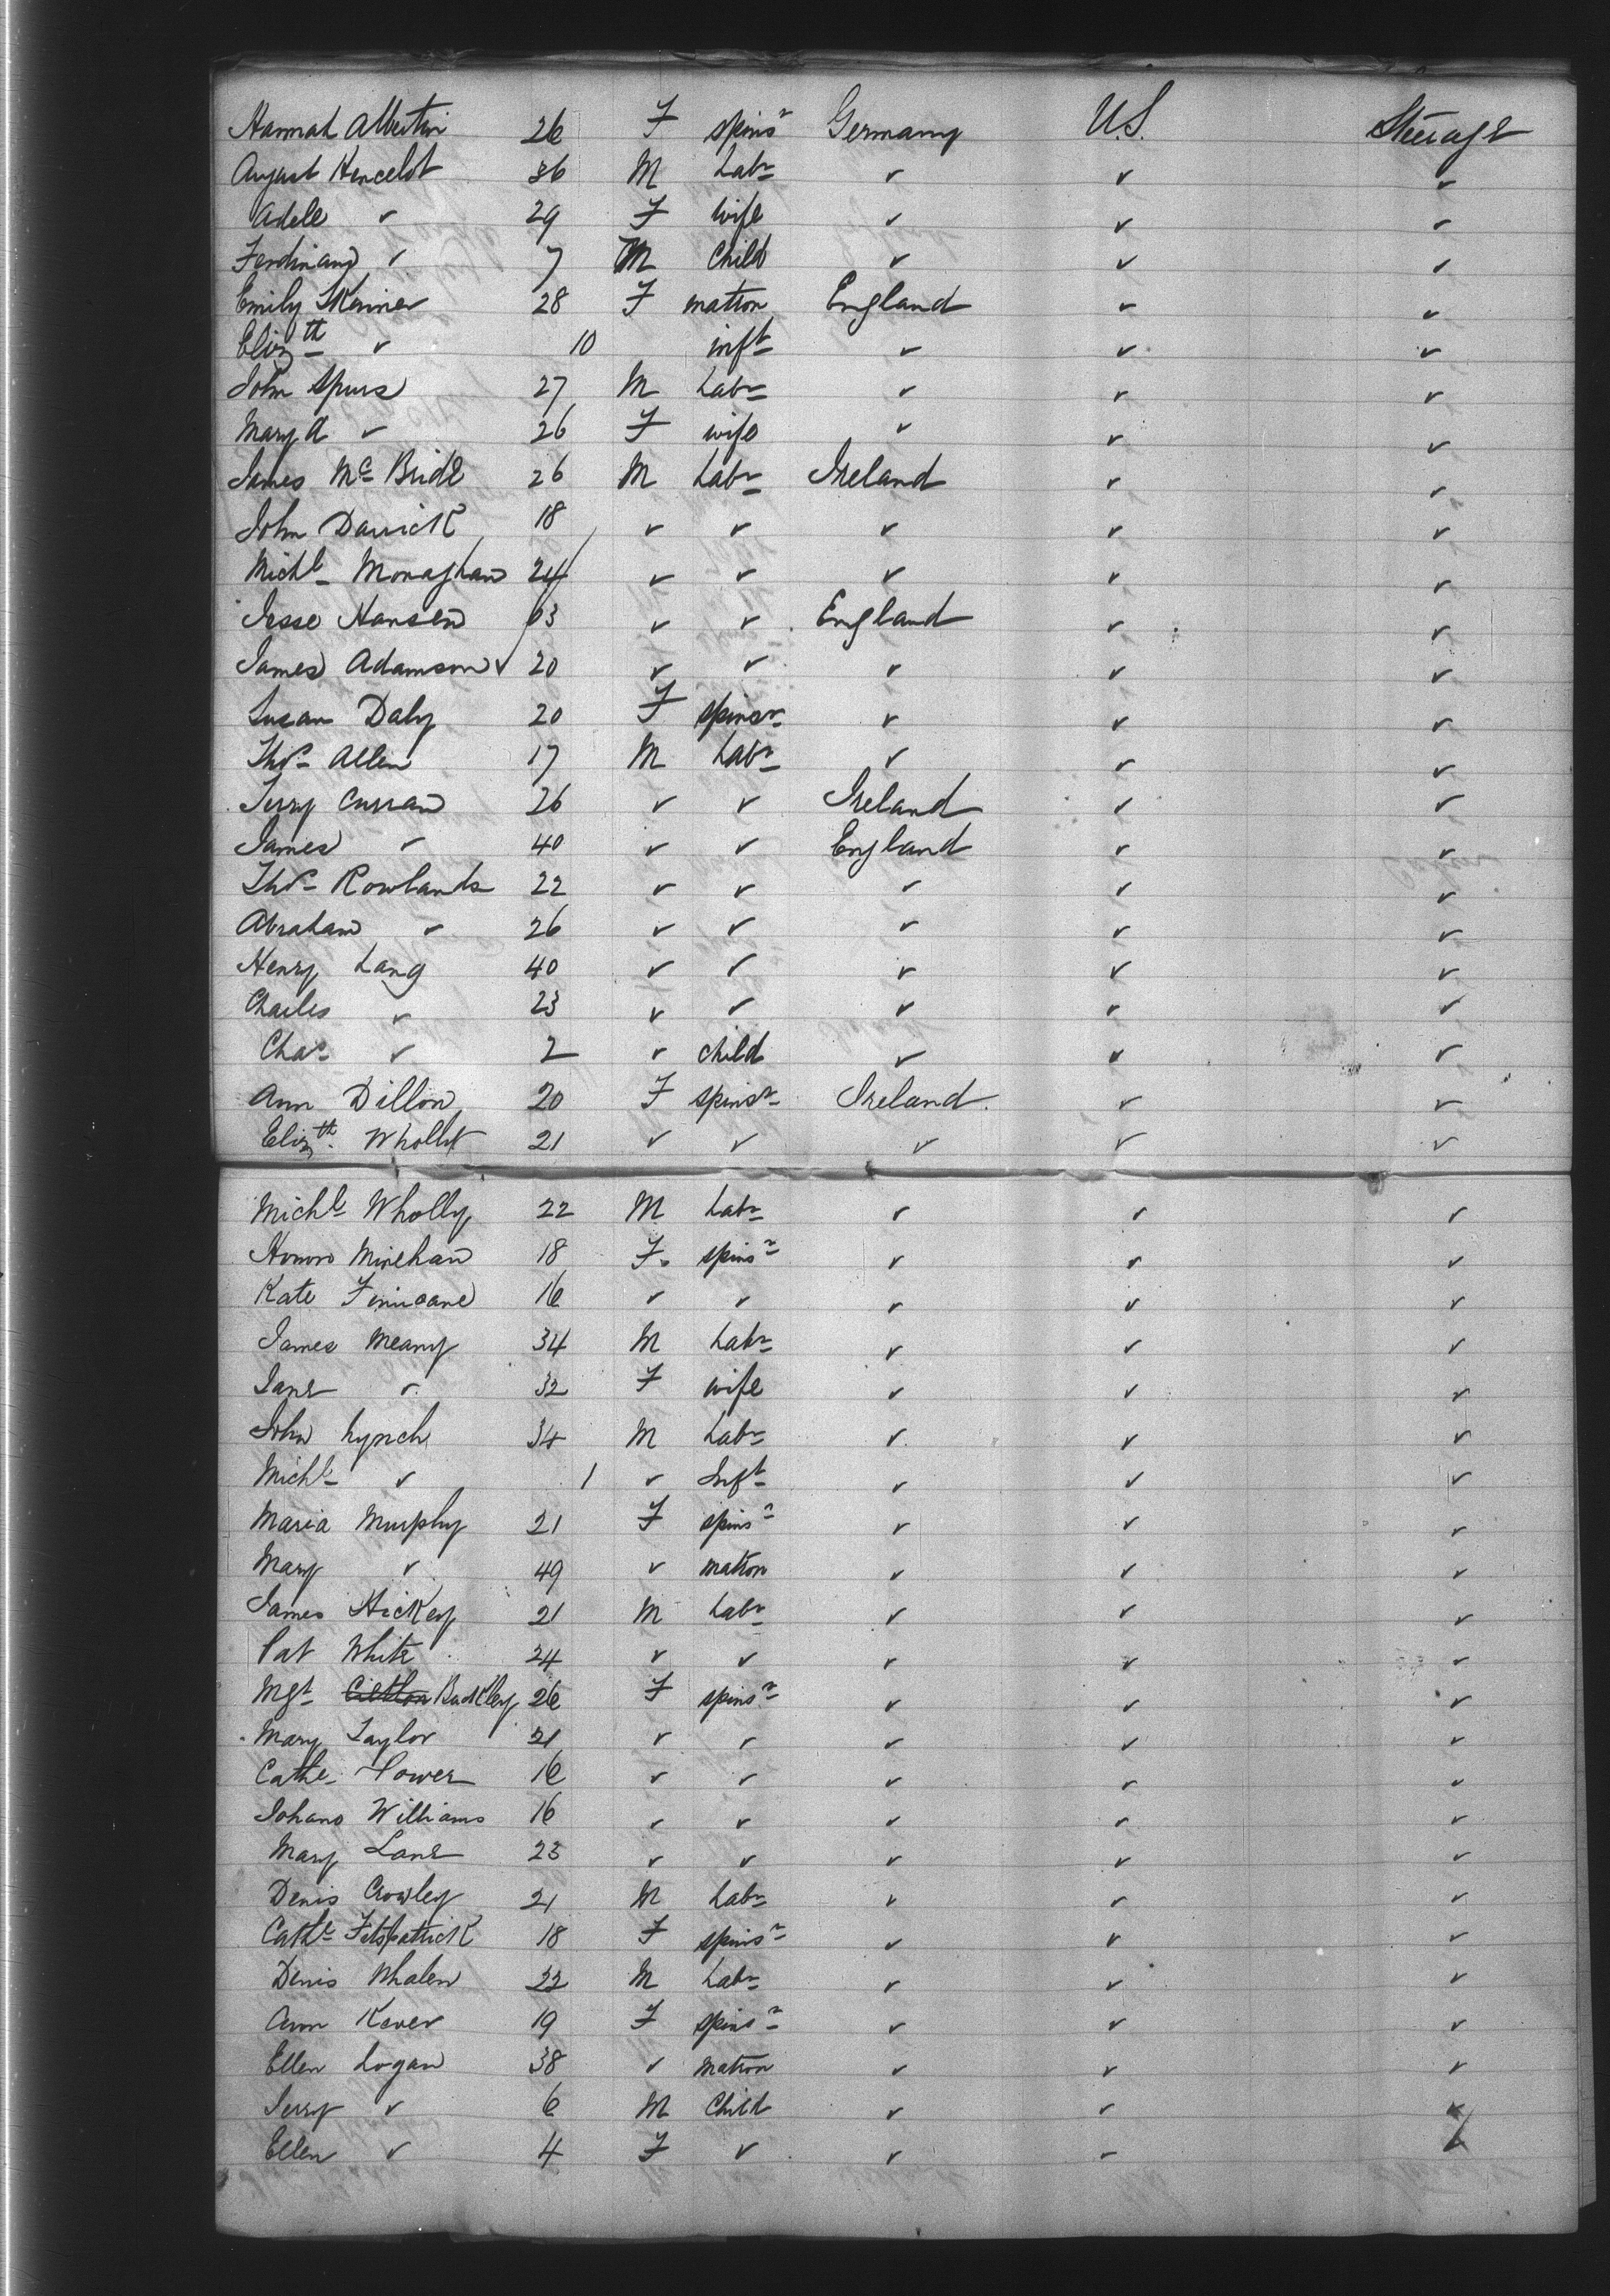 Hannah Albertin 26 F spinsr Germany U.S. Steerage
August Hencelot 36 M Labr ✓ ✓ ✓
Adele ✓ 29 F wife ✓ ✓ ✓
Ferdinand ✓ 7 M Child ✓ ✓ ✓
Emily Skinner 28 F matron England ✓ ✓
Elizth ✓ 10 inft ✓ ✓ ✓
John Spurs 27 M Labr ✓ ✓ ✓
Mary A ✓ 26 F wife ✓ ✓ ✓
James Mc Bride 26 M Labr Ireland ✓ ✓
John Darrick 18 ✓ ✓ ✓ ✓ ✓
Michl Monaghan 24 ✓ ✓ ✓ ✓ ✓
Jesse Hansen 03 ✓ ✓ England ✓ ✓
James Adamson ✓ 20 ✓ ✓ ✓ ✓ ✓
Susan Daly 20 F spinsr ✓ ✓ ✓
Thos Allen 17 M Labr ✓ ✓ ✓
Jerry Curran 26 ✓ ✓ Ireland ✓ ✓
James ✓ 40 ✓ ✓ England ✓ ✓
Thos Rowlands 22 ✓ ✓ ✓ ✓ ✓
Abraham ✓ 26 ✓ ✓ ✓ ✓ ✓
Henry Lang 40 ✓ ✓ ✓ ✓ ✓
Charles ✓ 23 ✓ ✓ ✓ ✓ ✓
Chas ✓ 2 ✓ child ✓ ✓ ✓
Ann Dillon 20 F spinsr Ireland ✓ ✓
Elizth 21 ✓ ✓ ✓ ✓ ✓
Michl Wholly 22 M Labr ✓ ✓ ✓
Honora Minehan 18 F. spinsr ✓ ✓ ✓
Kate Finucane 16 ✓ ✓ ✓ ✓ ✓
James Meany 34 M Labr ✓ ✓ ✓
Jane ✓ 32 F wife ✓ ✓ ✓
John Lynch 34 M Labr ✓ ✓ ✓
Michl ✓ 1 ✓ Inft ✓ ✓ ✓
Maria Murphy 21 F spinsr ✓ ✓ ✓
Mary ✓ 49 ✓ matron ✓ ✓ ✓
James Hickey 21 M Labr ✓ ✓ ✓
Pat White 24 ✓ ✓ ✓ ✓ ✓
Mgt Buckley 26 F spinsr ✓ ✓ ✓
Mary Taylor 21 ✓ ✓ ✓ ✓ ✓
Cathe Power 16 ✓ ✓ ✓ ✓ ✓
Johana Williams 16 ✓ ✓ ✓ ✓ ✓
Mary Lane 23 ✓ ✓ ✓ ✓ ✓
Denis Crowley 21 M Labr ✓ ✓ ✓
Cathe Fitspatrick 18 F spinsr ✓ ✓ ✓
Denis Whalen 22 M Labr ✓ ✓ ✓
Ann Kaver 19 F spinsr ✓ ✓ ✓
Ellen Logan 38 ✓ matron ✓ ✓ ✓
Jerry ✓ 6 M Child ✓ ✓ ✓
Ellen ✓ 4 F ✓ ✓ ✓